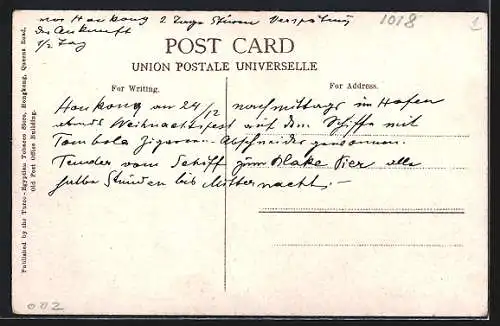 vor Honkong 2 Tage Sturm Verspätung
der Ankunft
1/2 Tag
1018
1
POST CARD
UNION POSTALE UNIVERSELLE
For Writing.
For Address.
Honkong am 24/12 nachmittags im Hafen
abends Weihnachtsfest auf dem Schiffe mit
Tombola Zigarren-Abschneider gewonnen.
Tender vom Schiff zum Blake Pier alle
halbe Stunden bis Mitternacht.-
Published by the Turco-Egyptian Tobacco Store, Hongkong, Queens Road,
Old Post Office Building.